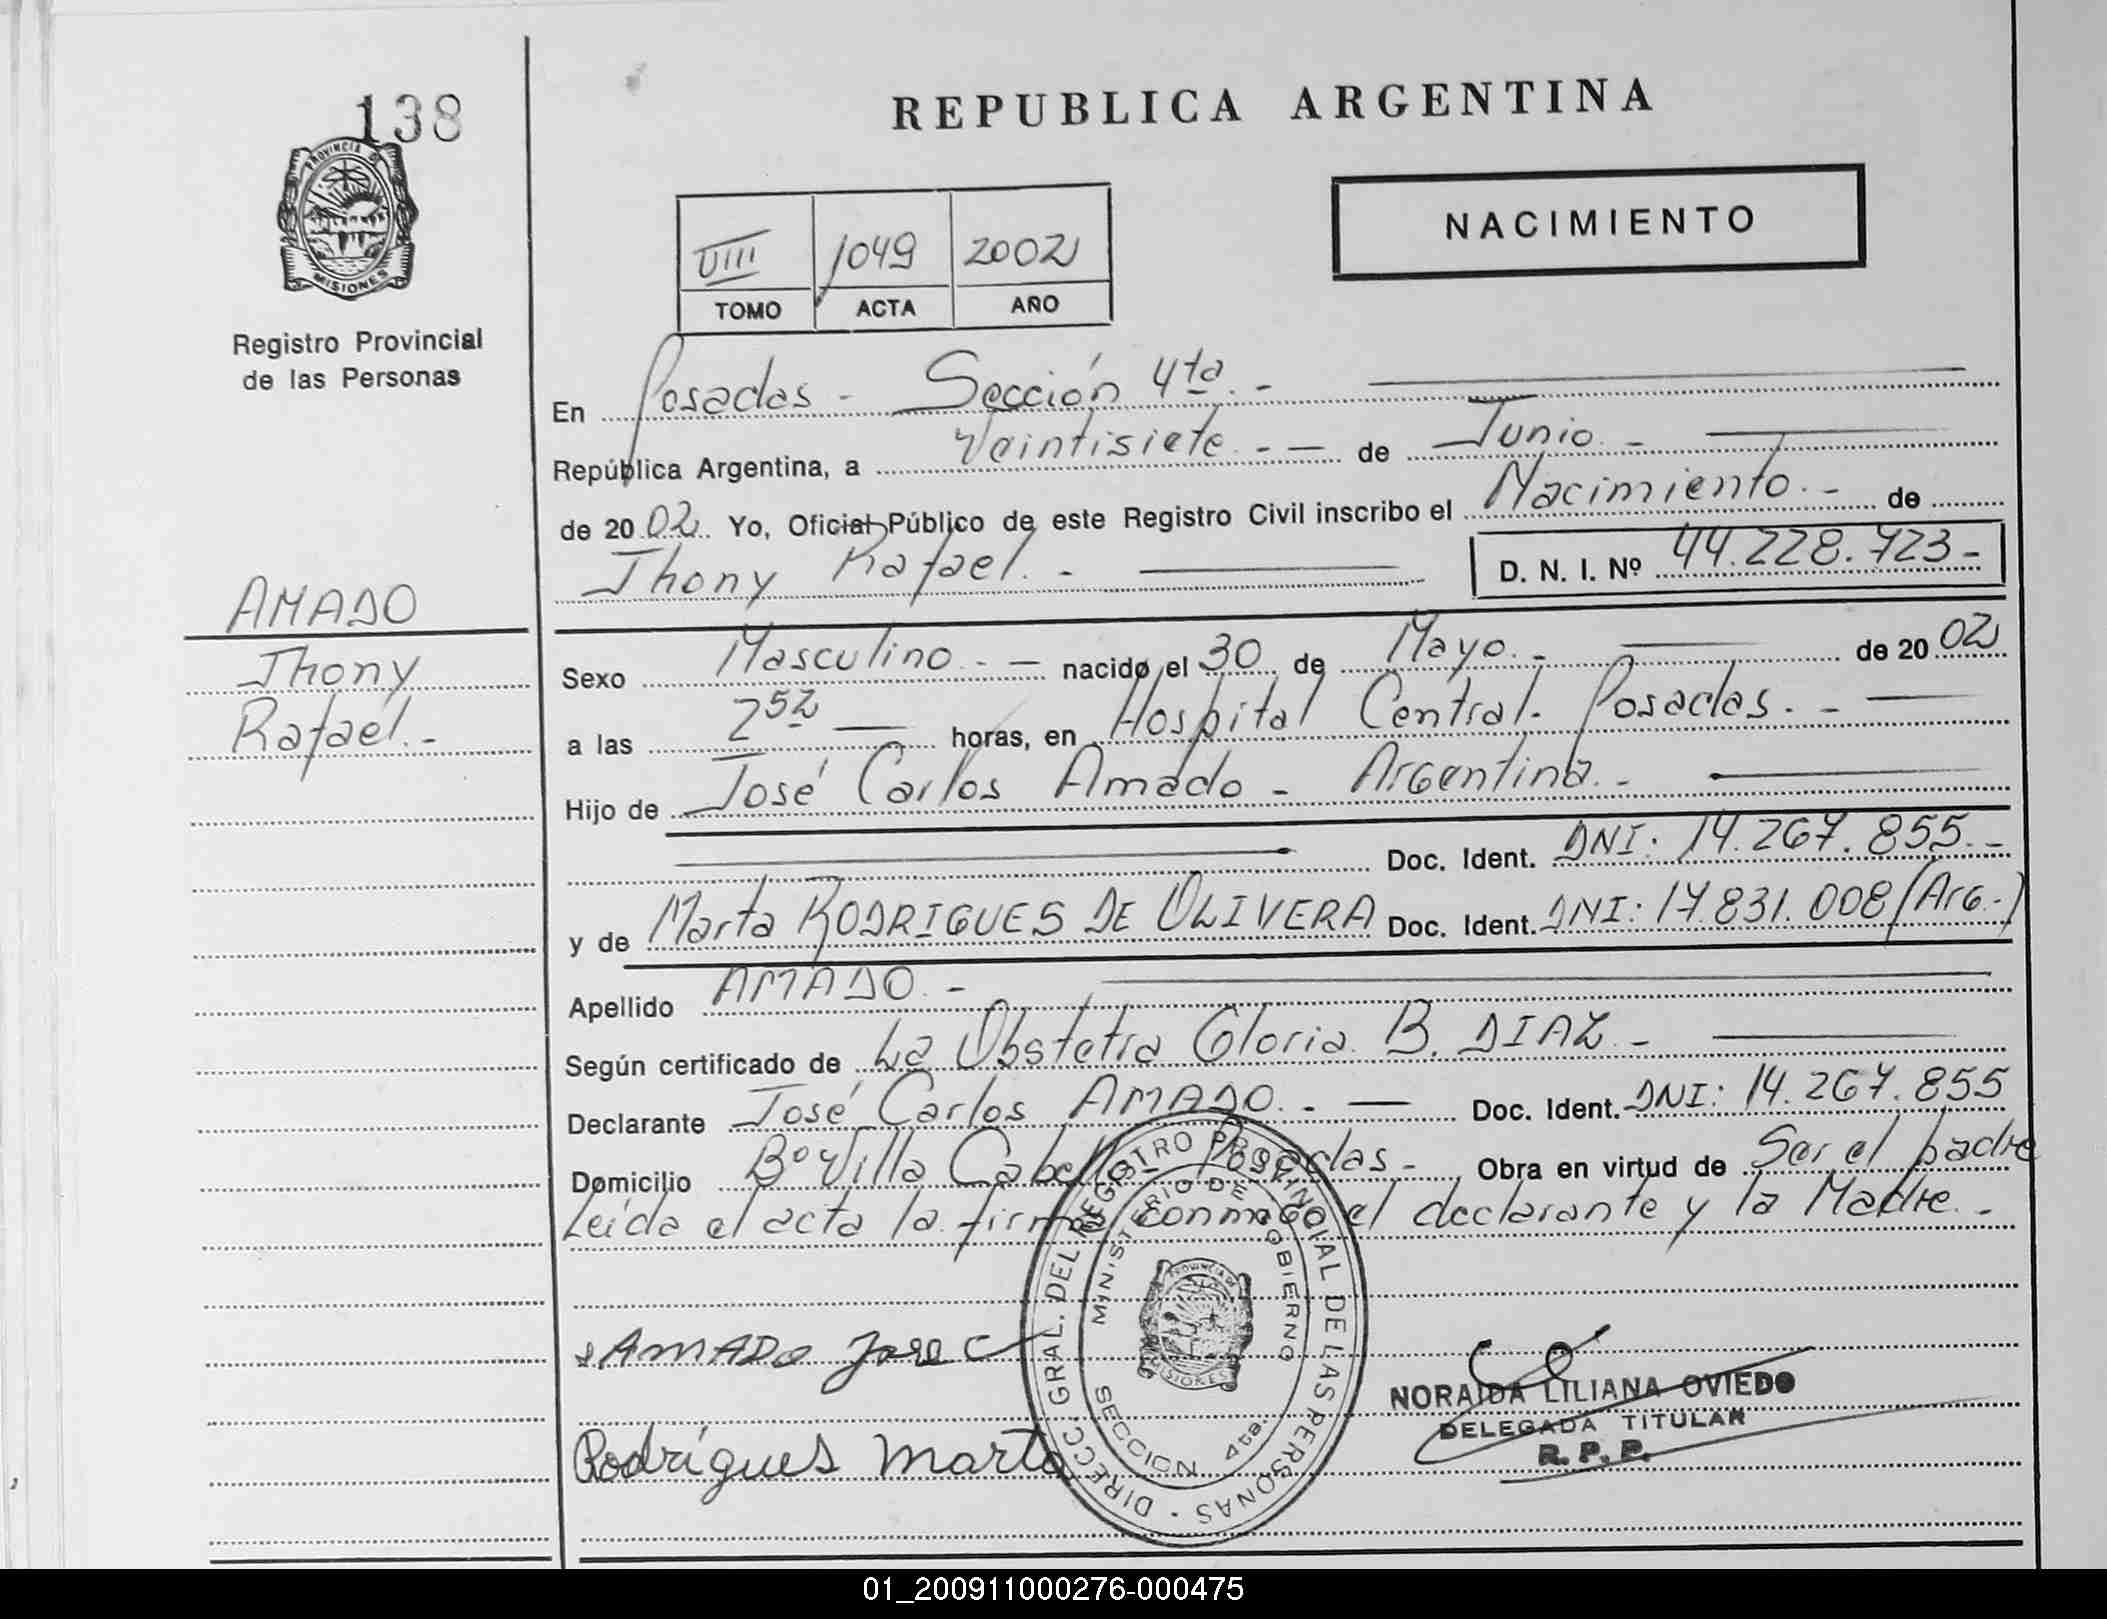 138
PROVINCIA DE
MISIONES
Registro Provincial
de las Personas
AMADO
Jhony
Rafael.-
REPUBLICA ARGENTINA
NACIMIENTO
VIII 1049 2002
TOMO ACTA AÑO
En Posadas - Sección 4ta.-
República Argentina, a Veintisiete.- - de Junio.-
de 2002. Yo, Oficial Público de este Registro Civil inscribo el Nacimiento.- de
Jhony Rafael.- D. N. I. Nº 44.228.723-
Sexo Masculino.- - nacido el 30 de Mayo.- de 2002
a las 2 52 horas, en Hospital Central. Posadas.-
Hijo de José Carlos Amado - Argentina.-
Doc. Ident. DNI: 14.267.855.-
y de Marta RODRIGUES DE OLIVERA Doc. Ident. DNI: 17.831.008 (Arg.-)
Apellido AMADO.-
Según certificado de La Obstetra Gloria B. DIAZ.-
Declarante José Carlos AMADO.- - Doc. Ident. DNI: 14.267.855
Domicilio Bº Villa Cabello Posadas- Obra en virtud de Ser el padre
Leída el acta la firman conmigo el declarante y la Madre.-
AMADO Jose C
Rodrígues Marta
DIRECC. GRAL. DEL REGISTRO PROVINCIAL DE LAS PERSONAS
MINISTERIO DE GOBIERNO
PROVINCIA DE
MISIONES
SECCION 4ta.
NORAIDA LILIANA OVIEDO
DELEGADA TITULAR
R. P. P.
01_200911000276-000475